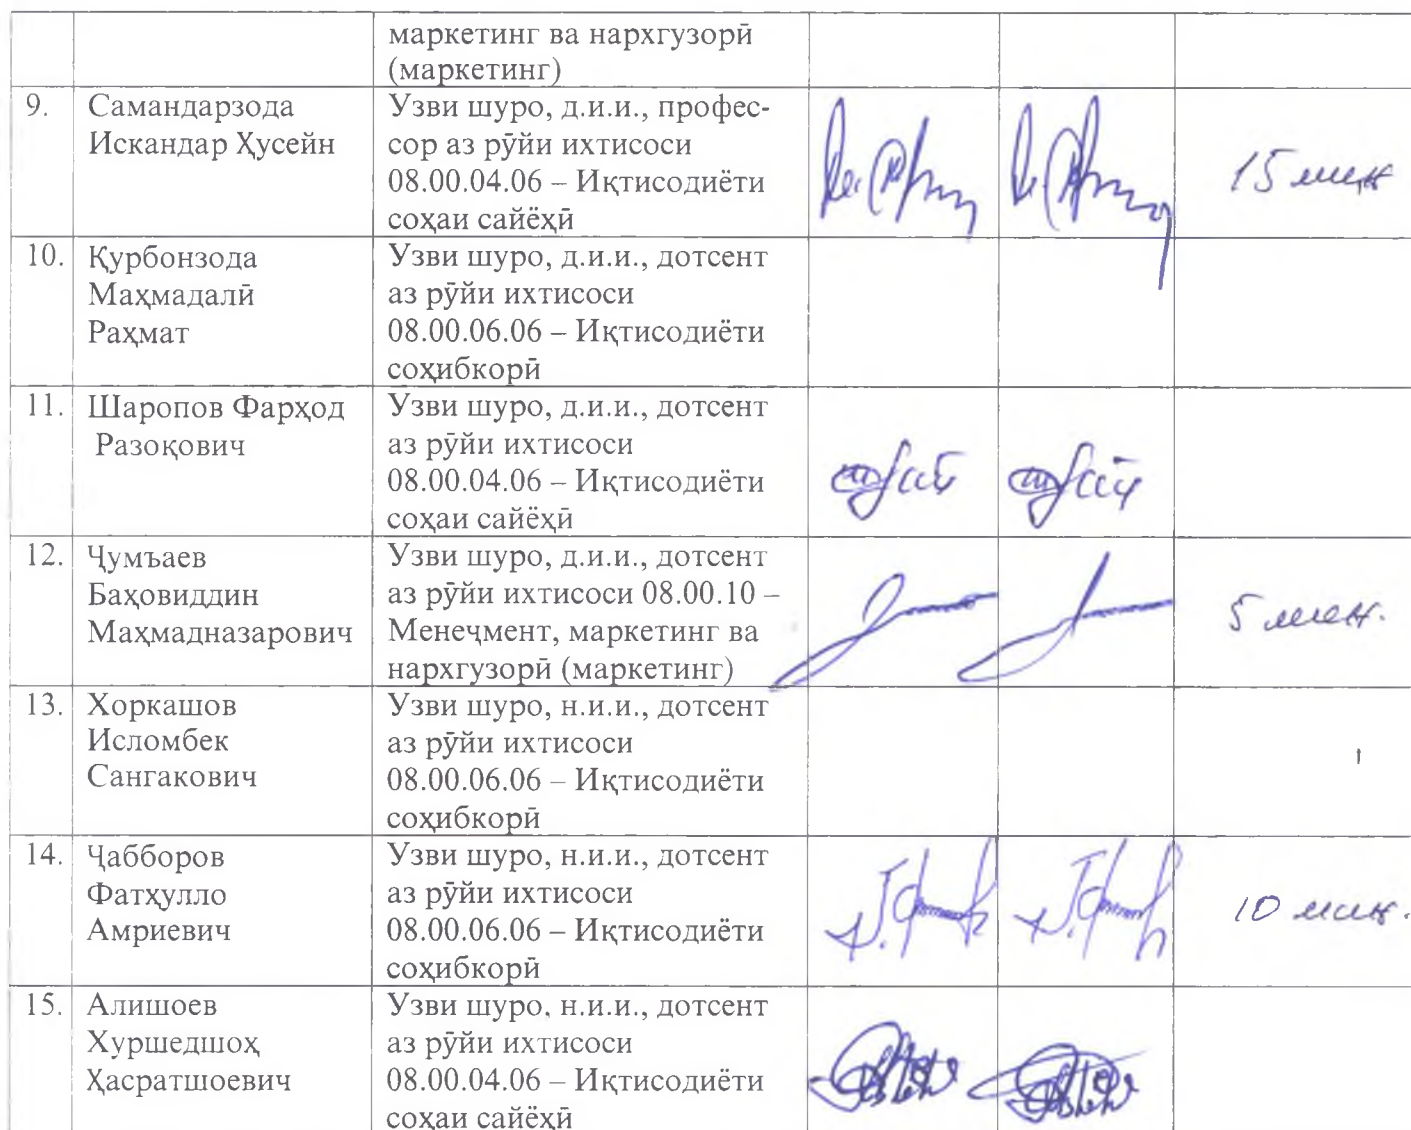 маркетинг ва нархгузорӣ
(маркетинг)
9. Самандарзода
Искандар Ҳусейн
Узви шуро, д.и.и., профес-
сор аз рӯйи ихтисоси
08.00.04.06 – Иқтисодиёти
соҳаи сайёҳӣ
15 мин
10. Қурбонзода
Маҳмадалӣ
Раҳмат
Узви шуро, д.и.и., дотсент
аз рӯйи ихтисоси
08.00.06.06 – Иқтисодиёти
соҳибкорӣ
11. Шаропов Фарҳод
Разоқович
Узви шуро, д.и.и., дотсент
аз рӯйи ихтисоси
08.00.04.06 – Иқтисодиёти
соҳаи сайёҳӣ
12. Ҷумъаев
Баҳовиддин
Маҳмадназарович
Узви шуро, д.и.и., дотсент
аз рӯйи ихтисоси 08.00.10 –
Менеҷмент, маркетинг ва
нархгузорӣ (маркетинг)
5 мин.
13. Хоркашов
Исломбек
Сангакович
Узви шуро, н.и.и., дотсент
аз рӯйи ихтисоси
08.00.06.06 – Иқтисодиёти
соҳибкорӣ
14. Ҷабборов
Фатҳулло
Амриевич
Узви шуро, н.и.и., дотсент
аз рӯйи ихтисоси
08.00.06.06 – Иқтисодиёти
соҳибкорӣ
10 мин.
15. Алишоев
Хуршедшоҳ
Ҳасратшоевич
Узви шуро, н.и.и., дотсент
аз рӯйи ихтисоси
08.00.04.06 – Иқтисодиёти
соҳаи сайёҳӣ